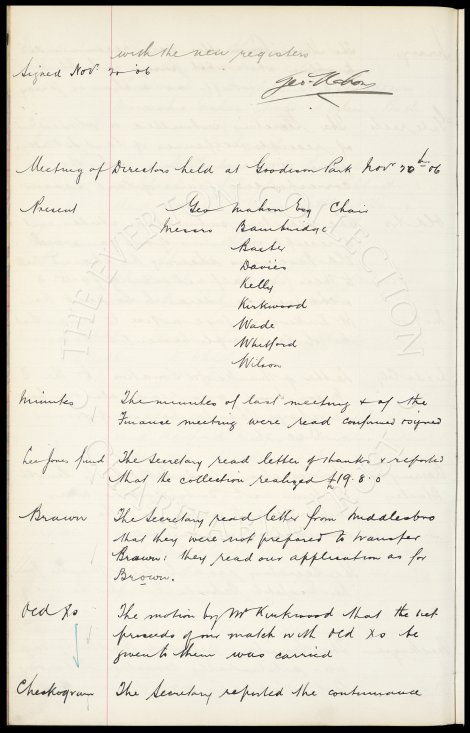 with the new registers
Signed Nov 20 '06
Geo. Mahon
Meeting of Directors held at Goodison Park Nov 20th 06
Present Geo Mahon Esq Chair
Messrs Bainbridge
Baxter
Davies
Kelly
Kirkwood
Wade
Whitford
Wilson
Minutes The minutes of last meeting & of the
Finance meeting were read confirmed & signed
Lee Jones fund The Secretary read letter of thanks & reported
that the collection realized £19.8.0
Brawn The Secretary read letter from Middlesboro
that they were not prepared to transfer
Brawn: they read our application as for
Brown.
Old Xs The motion by Mr Kirkwood that the net
proceeds of our match with Old Xs be
given to them was carried
Cheskogram The Secretary reported the continuance
THE EVERTON COLLECTION
CHARITABLE TRUST